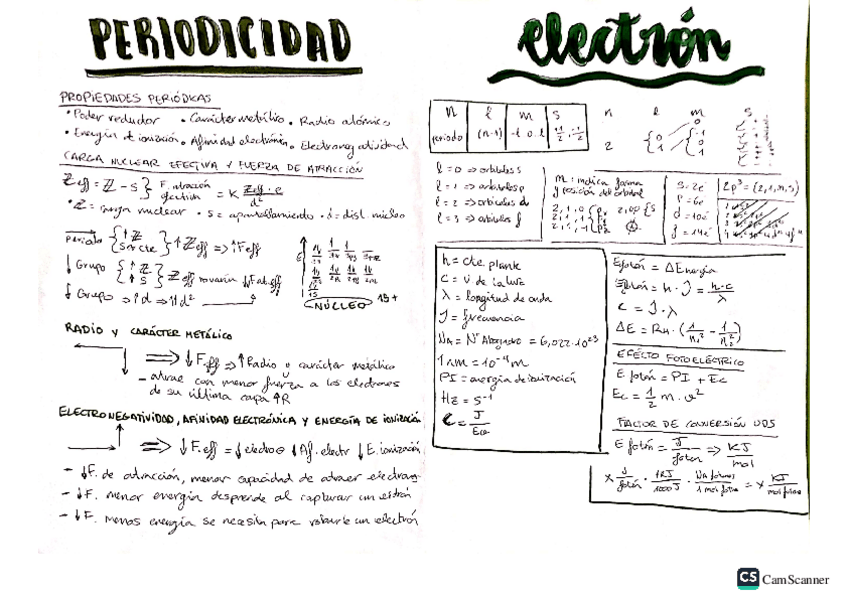 PERIODICIDAD
PROPIEDADES PERIÓDICAS
• Poder reductor • Carácter metálico • Radio atómico
• Energía de ionización • Afinidad electrónica • Electronegatividad
CARGA NUCLEAR EFECTIVA Y FUERZA DE ATRACCIÓN
Zeff = Z - S } F. atracción efectiva = K Zeff · e / d²
• Z = carga nuclear • S = apantallamiento • d = dist. núcleo
Periodo { ↑Z S≈cte } ↑Zeff => ↑Feff
↓ Grupo { ↑Z ↑S } Zeff no varía
↓ Grupo → ↑d → ↑↑d²
NÚCLEO
RADIO y CARÁCTER METÁLICO
=> ↓F.eff => ↑Radio y carácter metálico
- atrae con menor fuerza a los electrones
de su última capa ↑R
ELECTRONEGATIVIDAD, AFINIDAD ELECTRÓNICA Y ENERGÍA DE IONIZACIÓN
=> ↓F.eff = ↓electro⊖ ↓Af. electr ↓E. ionización
- ↓F. de atracción, menor capacidad de atraer electrones
- ↓F. menor energía desprende al capturar un electrón
- ↓F. menos energía se necesita para robarle un electrón
electrón
n l m s
periodo (n-1) -l 0 l 1/2, -1/2
n l m s
2
l = 0 => orbitales s
l = 1 => orbitales p
l = 2 => orbitales d
l = 3 => orbitales f
m: indica forma
y posición del orbital
s = 2e⁻
p = 6e⁻
d = 10e⁻
f = 14e⁻
h = cte. plank
c = v. de la luz
λ = longitud de onda
J = frecuencia
NA = Nº Abogadro = 6,022·10²³
1 nm = 10⁻⁹ m
PI = energía de ionización
Hz = s⁻¹
Efotón = ΔEnergía
Efotón = h · J = h·c / λ
c = J · λ
ΔE = RH · (1/n₁² - 1/n₂²)
EFECTO FOTOELÉCTRICO
E fotón = PI + Ec
Ec = 1/2 m · v²
FACTOR DE CONVERSIÓN
E fotón = J / fotón => KJ / mol
x J / fotón · 1KJ / 1000J · NA fotones / 1 mol fotones = x KJ / mol fotones
CS CamScanner